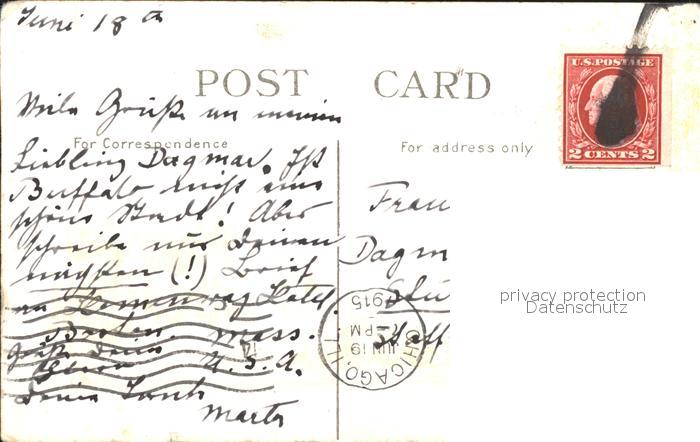 Juni 18th
POST CARD
Viele Grüße an meinen
For Correspondence
Liebling Dagmar. Ist
Buffalo nicht eine
schöne Stadt! Aber
schreibe mir Deinen
nächsten (!) Brief
an Hotel
Boston. Mass.
Grüße Deine
Eltern U.S.A.
Deine Tante
Marta
For address only
U.S. POSTAGE
2 CENTS 2
Frau
Dagm
Stu
Staff
CHICAGO, ILL.
JUN 19
PM
1915
privacy protection
Datenschutz